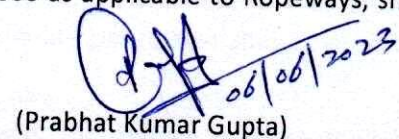 as applicable to Ropeways,
06/06/2023
(Prabhat Kumar Gupta)